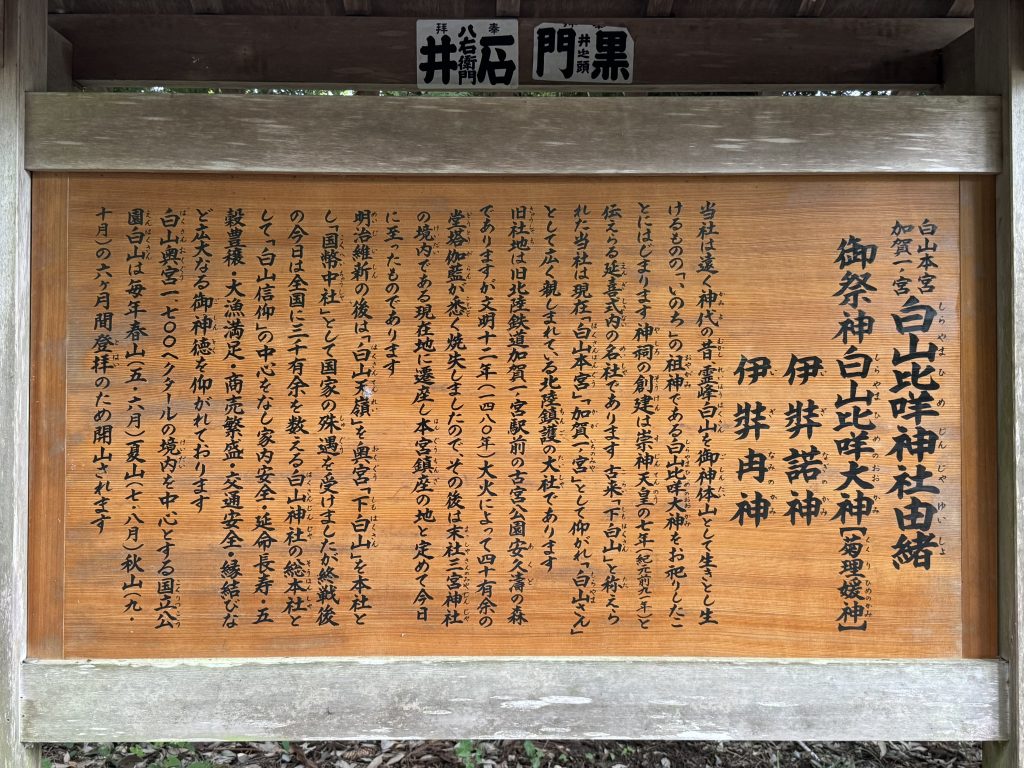 黒門
井之頭
奉拝
石井
八右衛門
白山本宮
加賀一ノ宮
白山比咩神社由緒
御祭神白山比咩大神【菊理媛神】
伊弉諾神
伊弉冉神
当社は遠く神代の昔霊峰白山を御神体山として生きとし生
けるものの「いのち」の祖神である白山比咩大神をお祀りしたこ
とにはじまります神祠の創建は崇神天皇の七年(紀元前九一年)と
伝えらる延喜式内の名社であります古来「下白山」と称えら
れた当社は現在「白山本宮」「加賀一ノ宮」として仰がれ「白山さん」
として広く親しまれている北陸鎮護の大社であります
旧社地は旧北陸鉄道加賀一ノ宮駅前の古宮公園安久濤の森
でありますが文明十二年(一四八〇年)大火によって四十有余の
堂塔伽藍が悉く焼失しましたので、その後は末社三宮神社
の境内である現在地に遷座し本宮鎮座の地と定めて今日
に至ったものであります
明治維新の後は「白山天嶺」を奥宮「下白山」を本社と
し「国幣中社」として国家の殊遇を受けましたが終戦後
の今日は全国に三千有余を数える白山神社の総本社と
して「白山信仰」の中心をなし家内安全・延命長寿・五
穀豊穣・大漁満足・商売繁盛・交通安全・縁結びな
ど広大なる御神徳を仰がれております
白山奥宮一七〇〇ヘクタールの境内を中心とする国立公
園白山は毎年春山(五・六月)夏山(七・八月)秋山(九・
十月)の六ヶ月間登拝のため開山されます